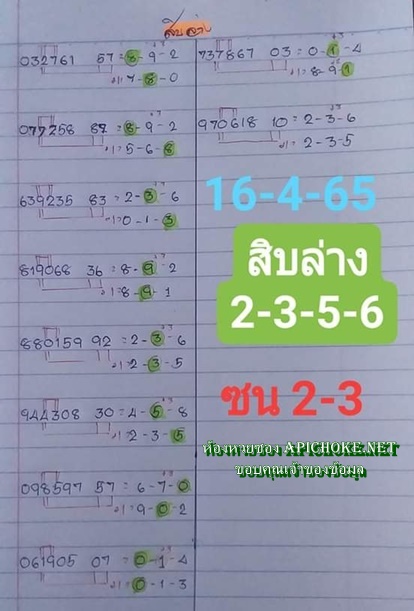 สิบล่าง
032761 57 = 8-9-2
+1 = 7-8-0
077258 87 = 8-9-2
+1 = 5-6-8
639235 83 = 2-3-6
+1 = 0-1-3
819068 36 = 8-9-2
+1 = 8-9-1
880159 92 = 2-3-6
+1 = 2-3-5
944308 30 = 4-5-8
+1 = 2-3-5
098597 57 = 6-7-0
+1 = 9-0-2
061905 07 = 0-1-4
+1 = 0-1-3
737867 03 = 0-1-4
+1 = 8-9-1
970618 10 = 2-3-6
+1 = 2-3-5
16-4-65
สิบล่าง
2-3-5-6
ชน 2-3
ห้องหวยของ APICHOKE.NET
ขอบคุณเจ้าของข้อมูล